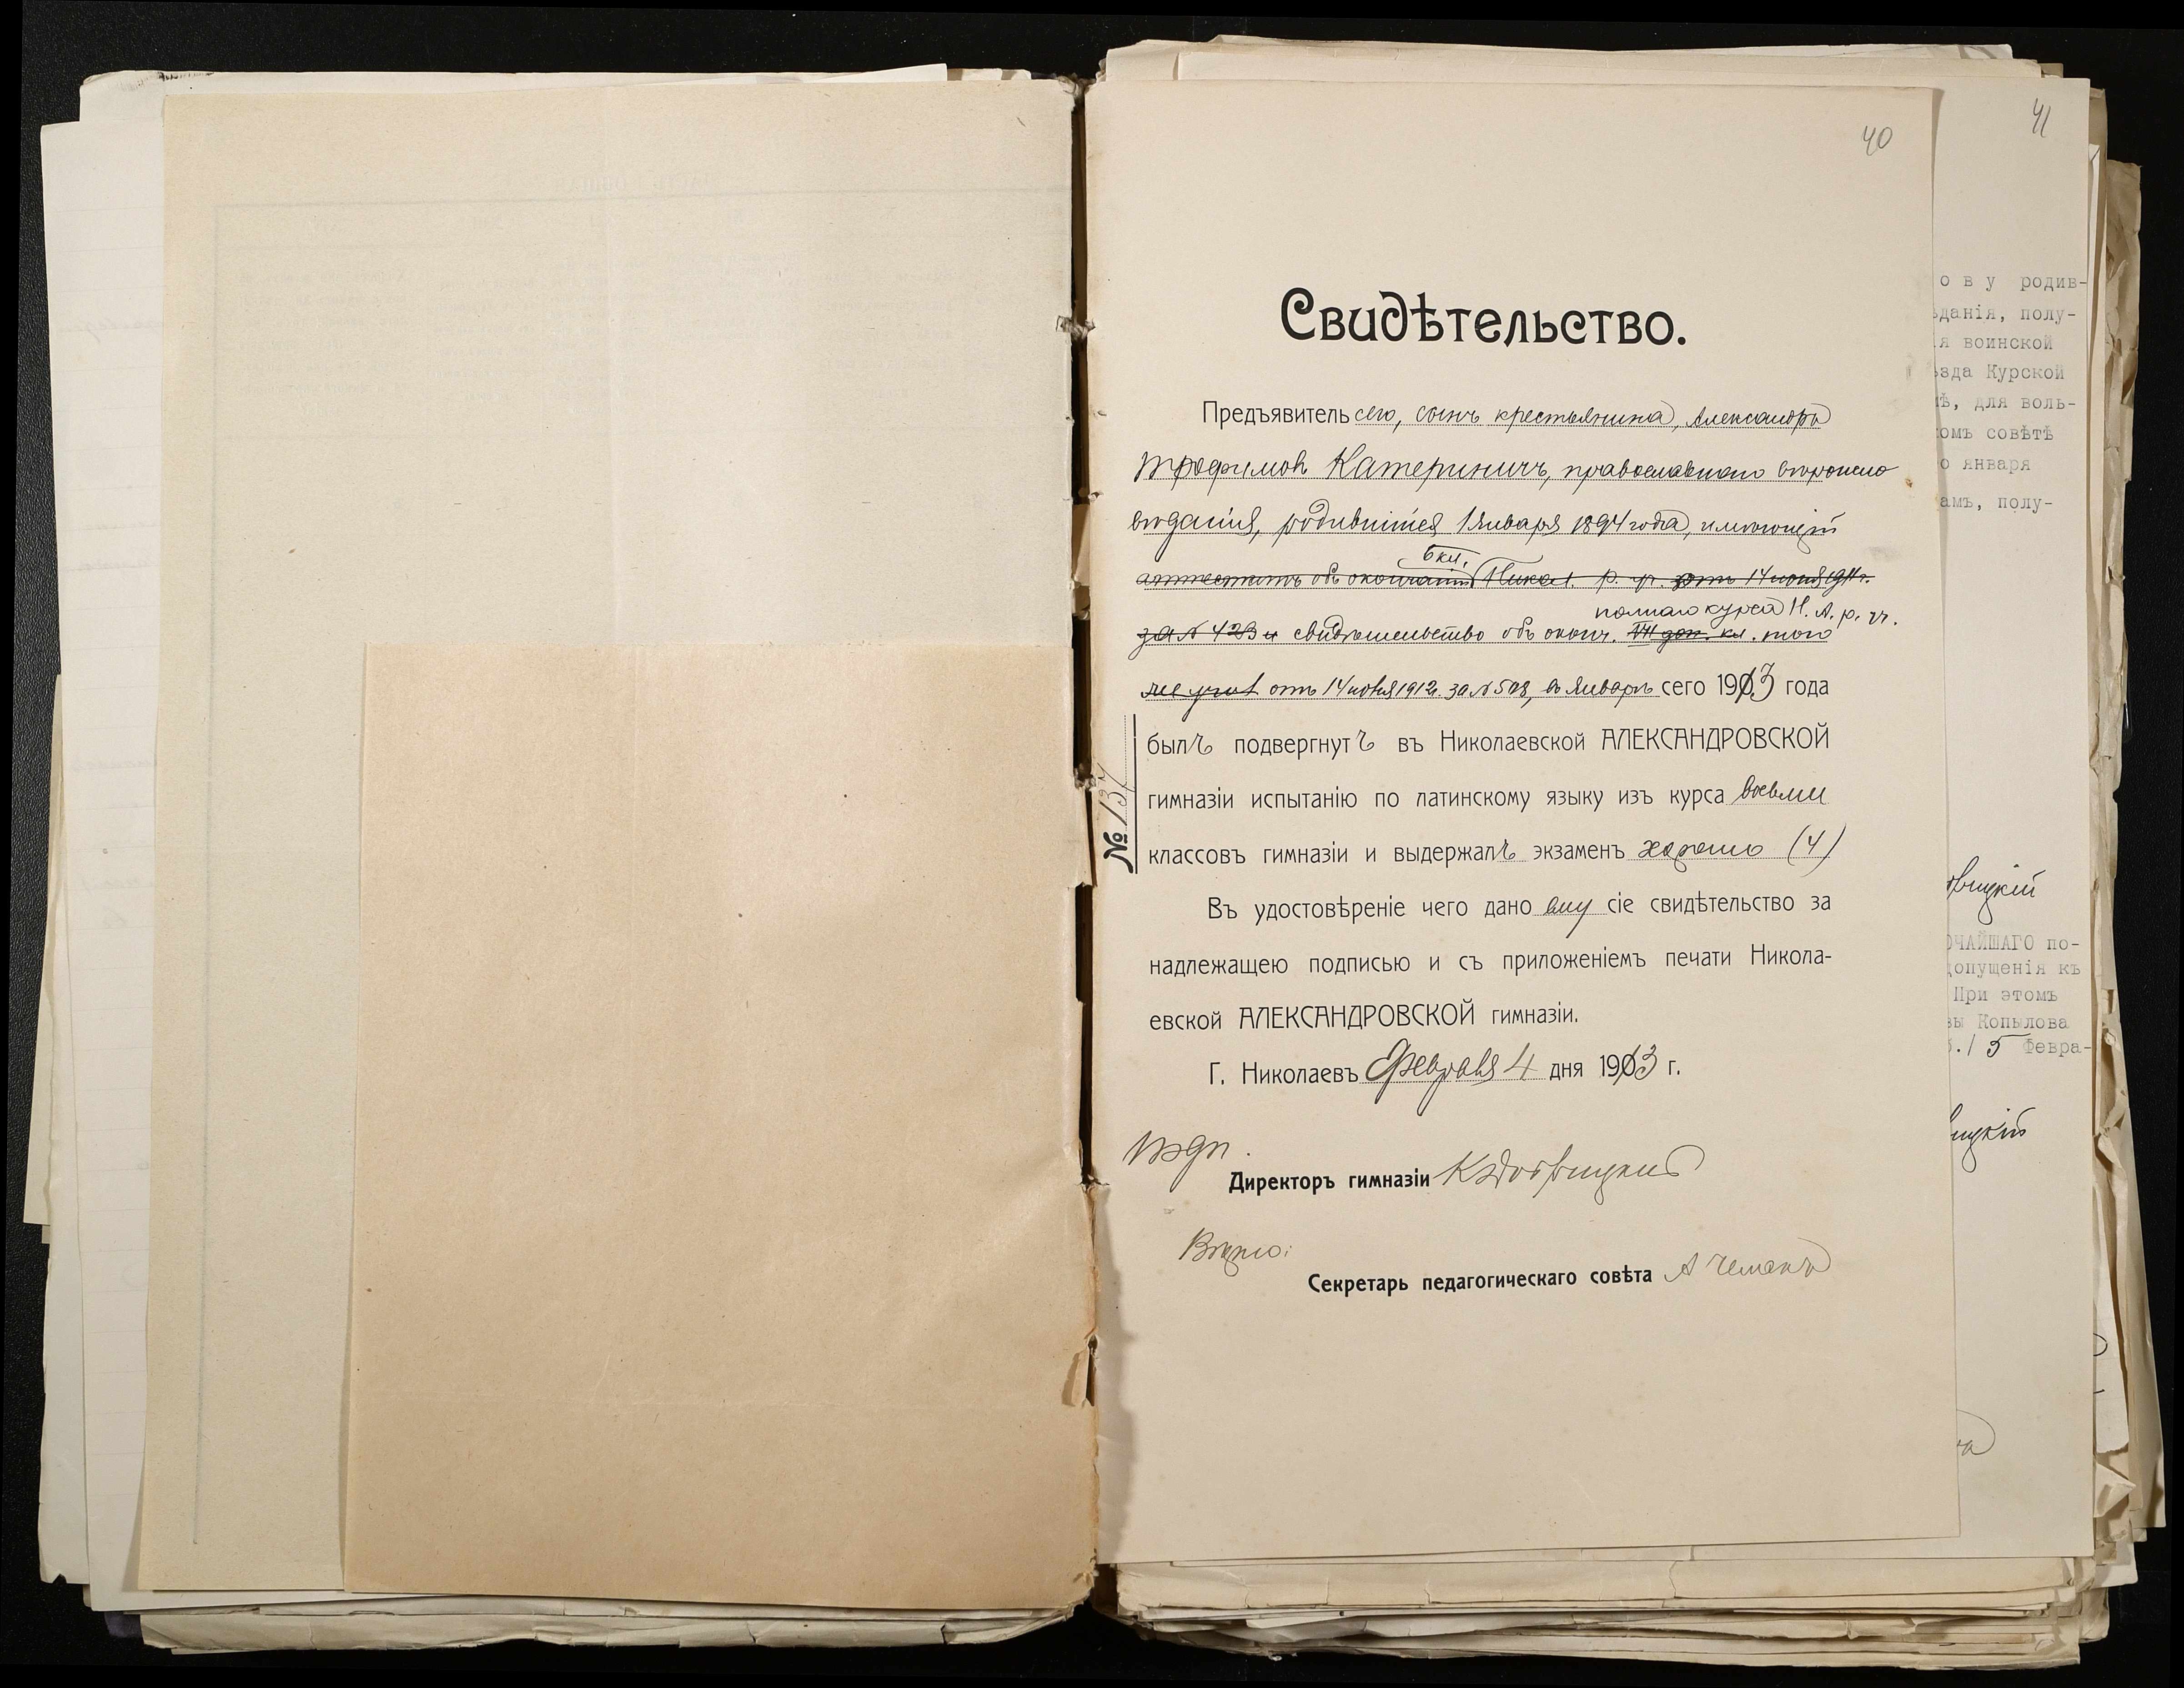 40
41
Свидѣтельство.
Предъявитель сего, сынъ крестьянина, Александръ
Трофимовъ Катериничъ, православнаго вѣроиспо
вѣданія, родившійся 1 Января 1894 года, имѣющій
6 кл.
аттестатъ объ окончаніи Никол. р. уч. отъ 14 іюня 1911 г.
полнаго курса Н. А. р. уч.
за № 423 и свидѣтельство объ оконч. VII доп. кл. того
же учил отъ 14 іюня 1912 г. за № 508, въ Январѣ сего 1913 года
былъ подвергнутъ въ Николаевской АЛЕКСАНДРОВСКОЙ
гимназіи испытанію по латинскому языку изъ курса восьми
классовъ гимназіи и выдержалъ экзаменъ хорошо (4)
№ 137
Въ удостовѣреніе чего дано ему сіе свидѣтельство за
надлежащею подписью и съ приложеніемъ печати Никола-
евской АЛЕКСАНДРОВСКОЙ гимназіи.
Г. Николаевъ Февраля 4 дня 1913 г.
Директоръ гимназіи
Вѣрно:
Секретарь педагогическаго совѣта А Чеманъ
ову родив-
ѣданія, полу-
я воинской
ѣзда Курской
ѣ, для воль-
омъ совѣтѣ
о января
амъ, полу-
овицкій
ОЧАЙШАГО по-
допущенія къ
При этомъ
вы Копылова
15 Февра-
вицкій